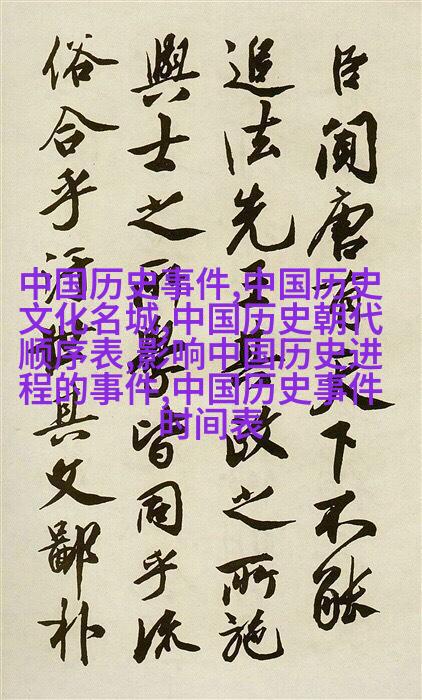 臣聞唐有天下不能
追法先王其政之所施
與士之所學皆同乎流
俗合乎汙具文鄙朴
中国历史事件,中国历史
文化名城,中国历史朝代
顺序表,影响中国历史进
程的事件,中国历史事件
时间表